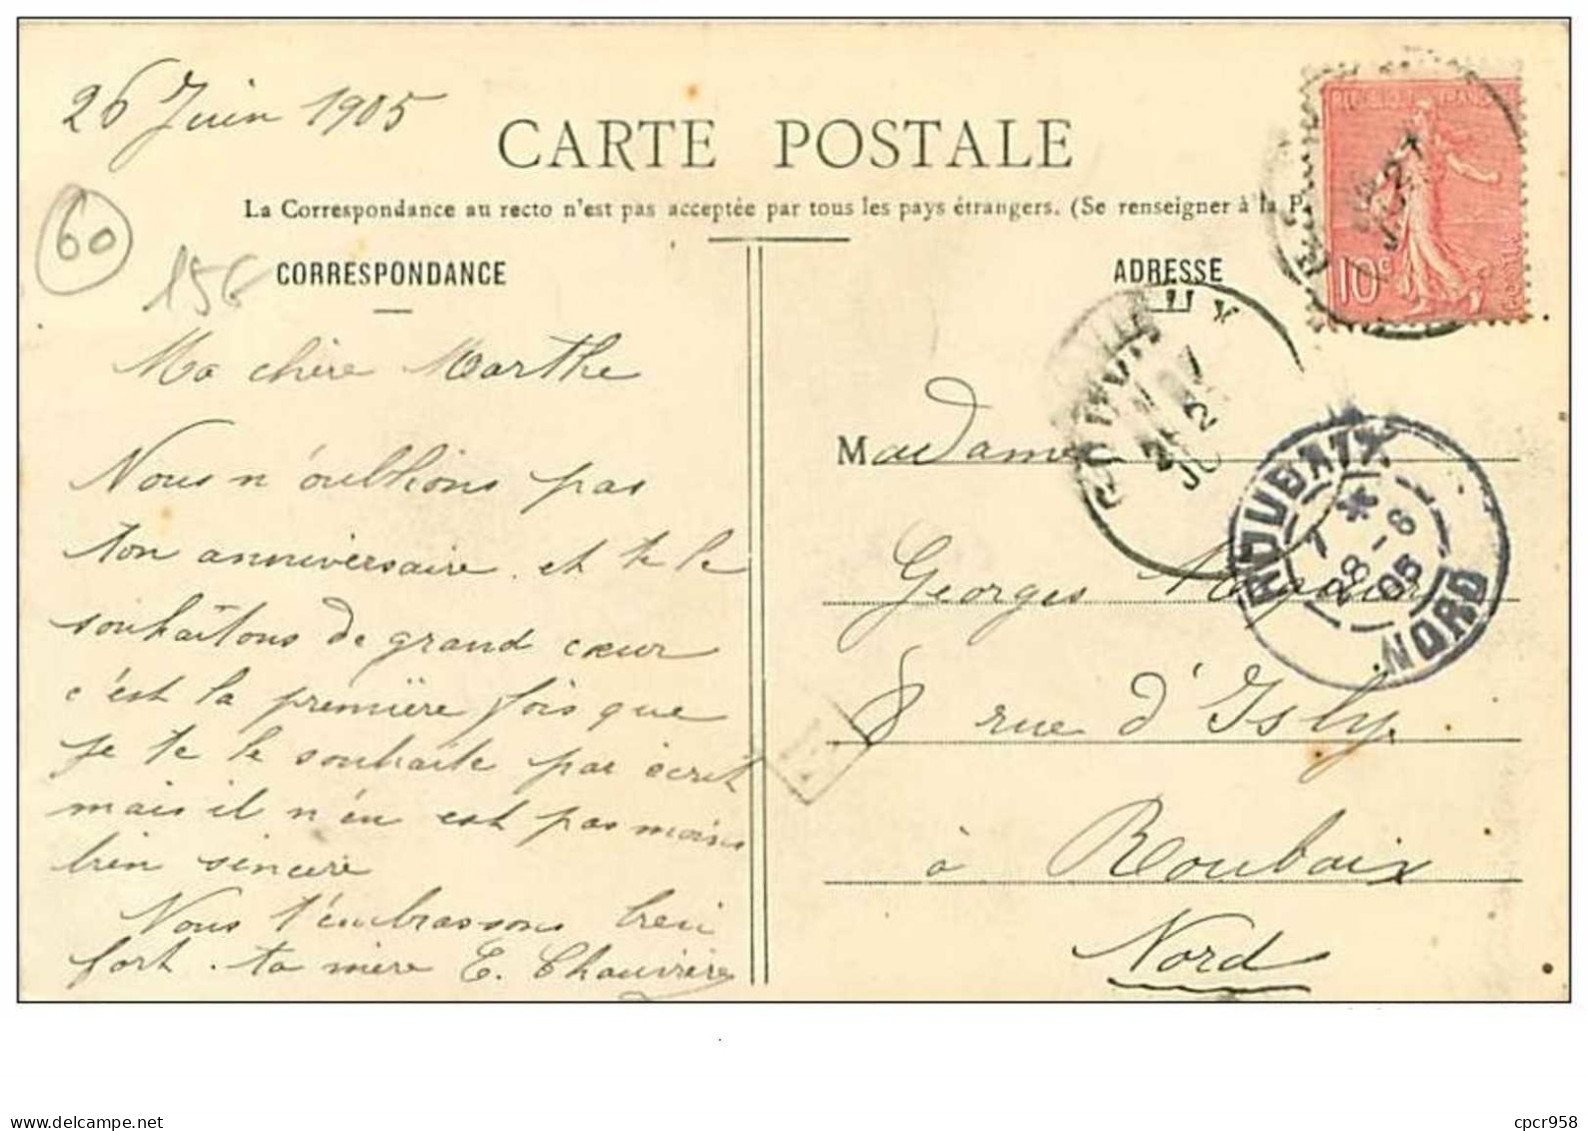 26 Juin 1905
CARTE POSTALE
La Correspondance au recto n'est pas acceptée par tous les pays étrangers. (Se renseigner à la P
60
156
CORRESPONDANCE
Ma chère Marthe
Nous n'oublions pas
ton anniversaire et te le
souhaitons de grand cœur
c'est la première fois que
je te le souhaite par écrit
mais il n'en est pas moins
bien sincère
Nous t'embrassons bien
fort. ta mère E. Chauvière
ADRESSE
Madame
Georges
8 rue d'Isly.
à Roubaix
Nord
10c
ROUBAIX
7 *
28-6
05
NORD
cpcr958